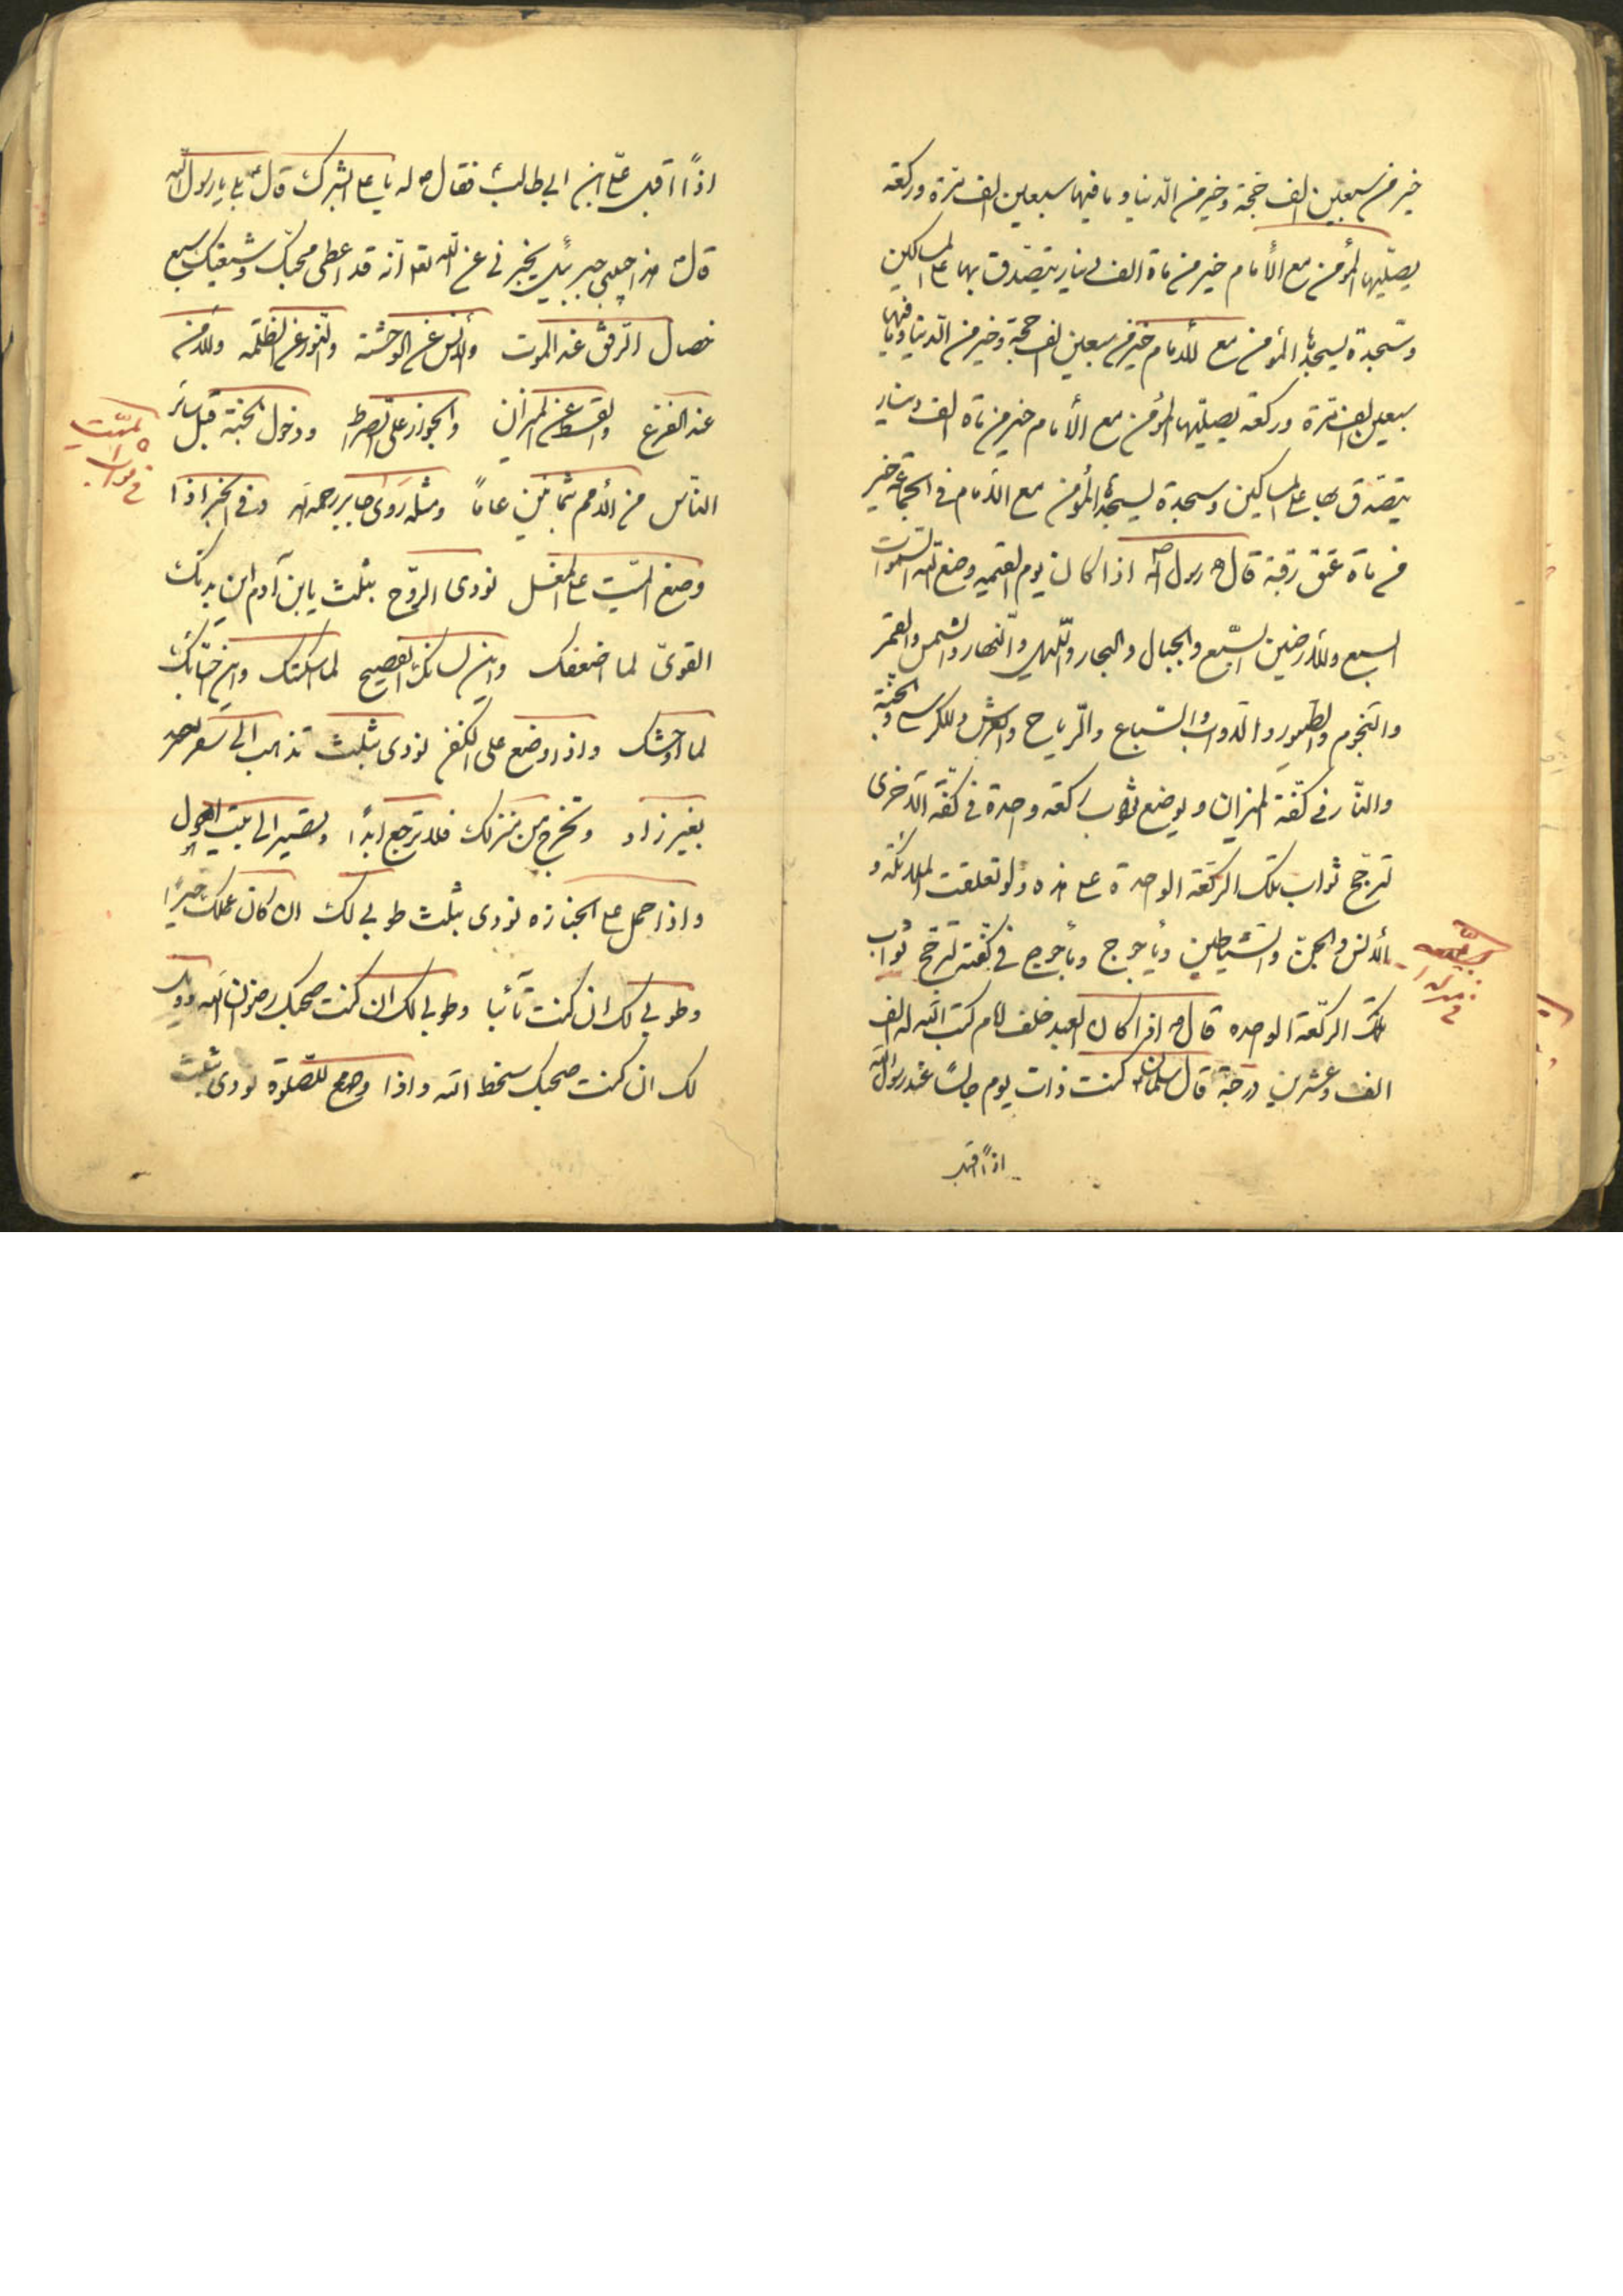 خير من سبعين الف حجة وخير من الدنيا وما فيها سبعين الف مرة وركعة
يصليها المؤمن مع الأمام خير من مأة الف دينار يتصدق بها على المساكين
وسجدة يسجدها المؤمن مع الأمام خير من سبعين الف حجة وخير من الدنيا وما فيها
سبعين الف مرة وركعة يصليها المؤمن مع الأمام خير من مأة الف دينار
يتصدق بها على المساكين وسجدة يسجدها المؤمن مع الأمام فى الجماعة خير
من مأة عتق رقبة قال رسول الله اذا كان يوم القيمة وضع الله السموات
السبع والأرضين السبع والجبال والبحار والليل والنهار والشمس والقمر
والنجوم والطيور والدواب والسباع والرياح والعرش والكرسي والجنة
والنار فى كفة الميزان ويوضع ثواب ركعة واحدة فى كفة الاخرى
ترجح ثواب تلك الركعة الواحدة على هذه ولو تعلقت الملائكة و
الأنس والجن والشياطين ويأجوج ومأجوج فى كفته ترجح ثواب
تلك الركعة الواحده قال اذا كان العبد خلف الامام كتب الله له الف
الف وعشرين درجة قال سلمان كنت ذات يوم جالسا عند رسول الله
اذا اقبل
اذا اقبل على ابن ابي طالب فقال له يا على ابشرك قال بلى يا رسول الله
قال هذا حبيبى جبرئيل يخبرنى عن الله تعا انه قد اعطى محبك وشيعتك سبع
خصال الرفق عند الموت والأنس عن الوحشة والنور عن الظلمه والأمن
عند الفزع والقسط عن الميزان والجواز على الصراط ودخول الجنة قبل سائر
الناس من الأمم ثمانين عاما ومثله روى جابر رحمه الله وفى الخبر اذا
الميت
وضع الميت على المغسل نودى الروح بثلث يا بن آدم اين بدنك
القوى لما اضعفك واين لسانك الفصيح لما اسكتك واين احبائك
لما اوحشك واذا وضع على الكفن نودى بثلث تذهب الى سفر
بغير زاد وتخرج من منزلك فلا ترجع ابدا وتصير الى بيت الهول
واذا حمل على الجنازه نودى بثلث طوبى لك ان كان عملك خيرا
وطوبى لك ان كنت تائبا وطوبى لك ان كنت صحبك رضوان الله وويل
لك ان كنت صحبك سخط الله واذا وضع للصلوة نودى بثلث